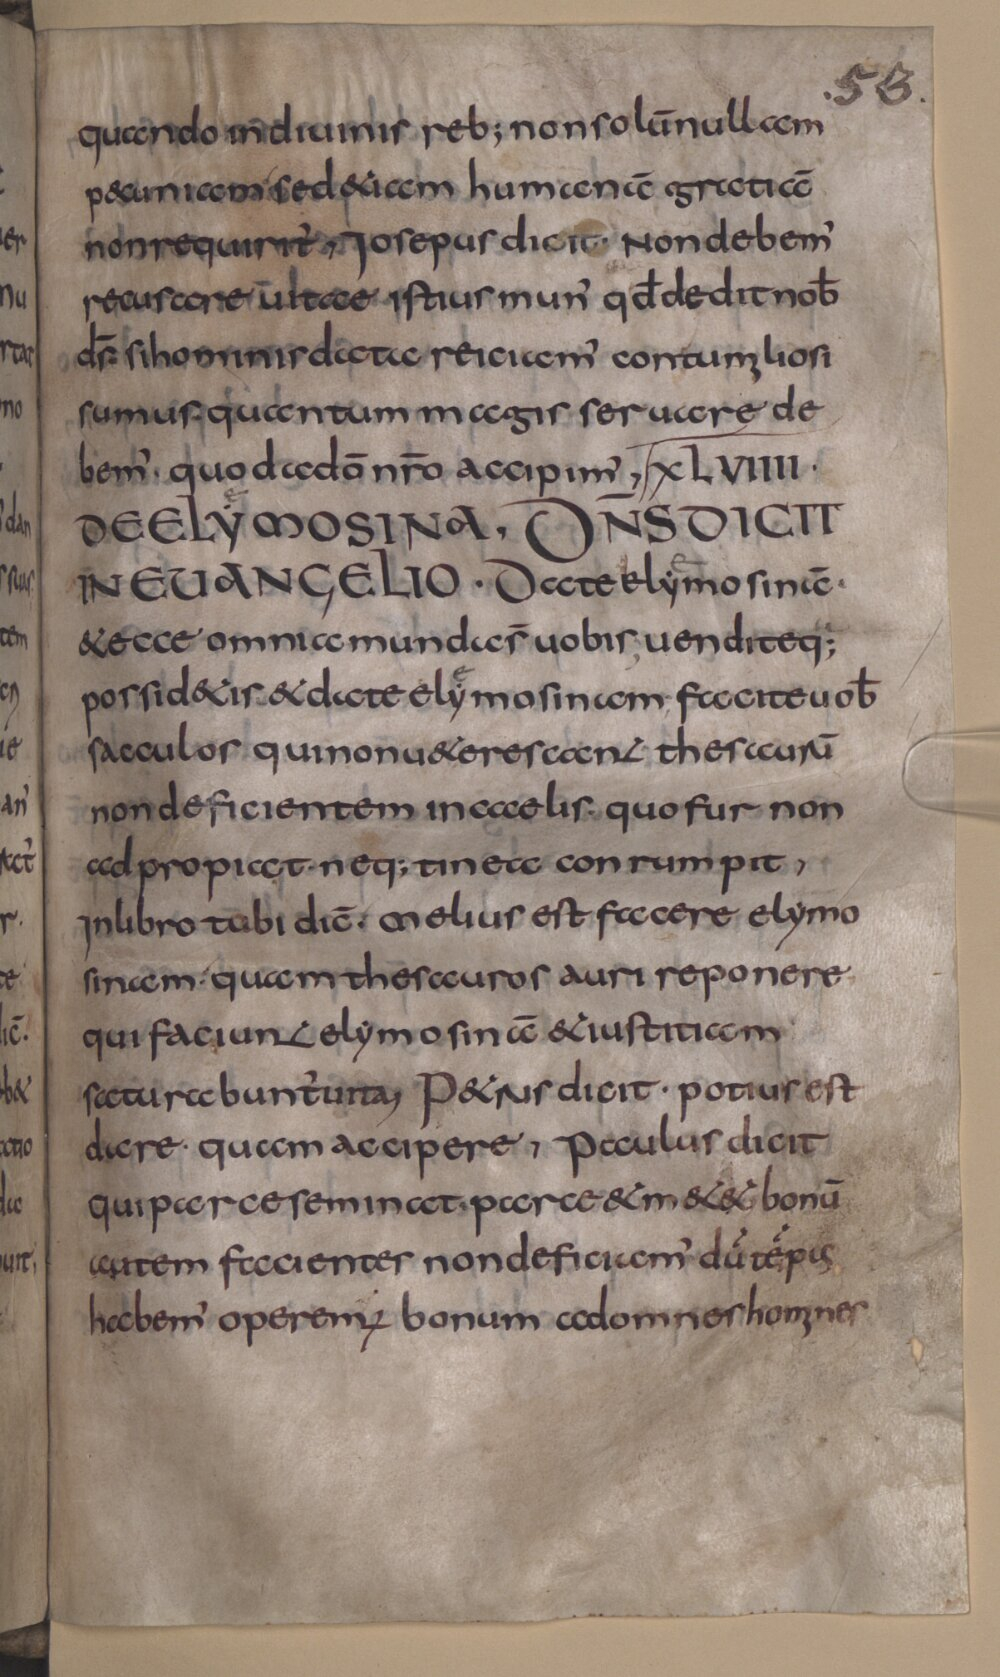 .53.
quando indiuinis reb; nonsolū nullam
p&cuniam sed&iam humanā gratiā
nonrequirit̉, Iosepus dicit· Nondebem̉
recusare ultae istius mun̉ qd̄ dedit nob̄
ds̄· sihominis data reiciam̉ contumliosi
sumus· quantum magis seruare de
bem̉· quod adō nr̄o accipim̉, XLVIIII·
DE ELYMOSINA, DN̄S DICIT
IN EUANGELIO · Date elymosinā·
&ecce omnia munda s̄ uobis, uenditeq;
possid&is· &date elymosinam· faciteuob̄
sacculos quinonu&erescant thesaurū
nondeficientem in caelis· quo fur non
adpropiat· neq; tinea conrumpit,
Inlibro tobi dic̄· Melius est facere elymo
sinam· quam thesauros auri reponere·
qui faciunt elymosinā &iustitiam
saturabunt̉ uita, P&rus dicit· potius est
dare· quam accipere, Paulus dicit
qui parce seminat· parce &m&& bonū
autem facientes nondeficiam̉ dū tēpus
habem̉ operemur bonum adomnes homnes